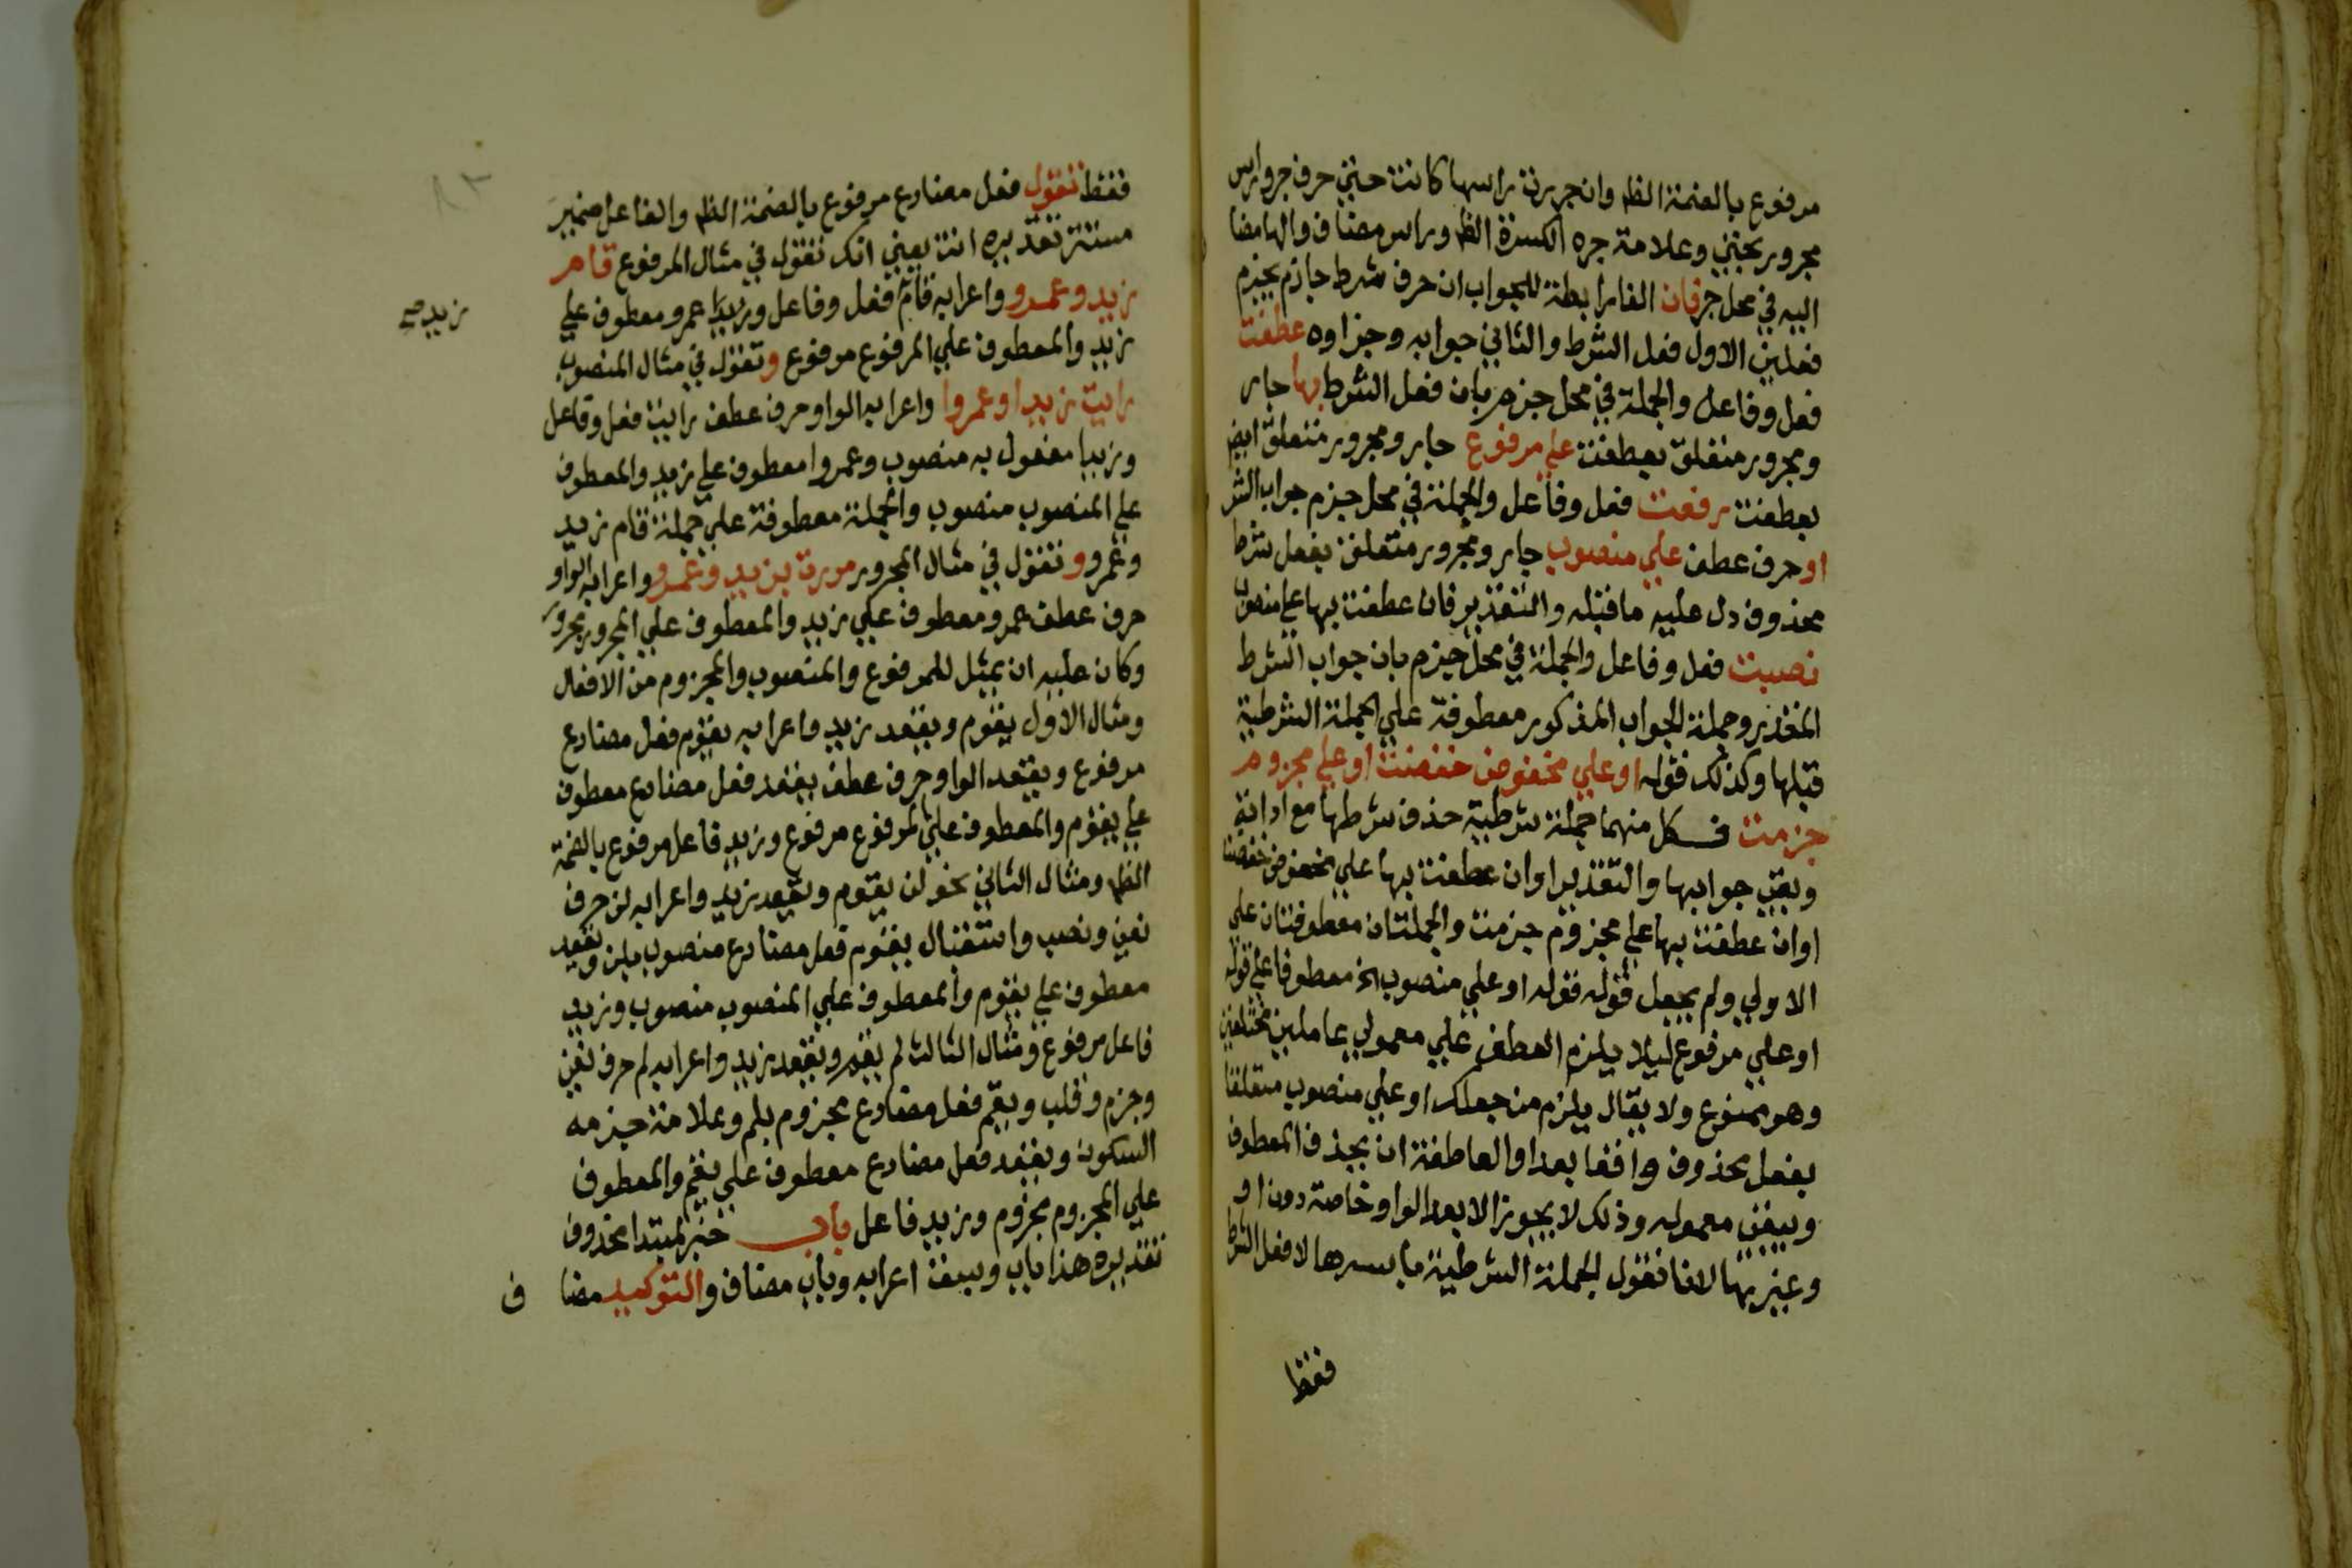 مرفوع بالضمة الظ وان جررت راسها كانت حتى حرف جر وراس
مجرور بحتى وعلامة جره الكسرة الظ وراس مضاف والها مضا
اليه في محل جر فان الفا رابطة للجواب ان حرف شرط جازم يجزم
فعلين الاول فعل الشرط والثاني جوابه وجزاوه عطفت
فعل وفاعل والجملة في محل جزم بان فعل الشرط بها جار
ومجرور متعلق بعطفت على مرفوع جار ومجرور متعلق ايض
بعطفت رفعت فعل وفاعل والجملة في محل جزم جواب الشر
او حرف عطف علي منصوب جار ومجرور متعلق بفعل شرط
محذوف دل عليه ما قبله والتقدير فان عطفت بها علي منصوب
نصبت فعل وفاعل والجملة في محل جزم بان جواب الشرط
المقدر وجملة الجواب المذكور معطوفة علي الجملة الشرطية
قبلها وكذلك قوله او علي مخفوض خفضت او علي مجزوم
جزمت فكل منهما جملة شرطية حذف شرطها مع اداته
وبقي جوابها والتقدير او ان عطفت بها علي مخفوض خفضت
او ان عطفت بها علي مجزوم جزمت والجملتان معطوفتان على
الاولي ولم يجعل قوله قوله او علي منصوب الخ معطوفا علي قوله
او علي مرفوع ليلا يلزم العطف علي معمولي عاملين مختلفين
وهو ممنوع ولا يقال يلزم من جعلك او علي منصوب متعلقا
بفعل محذوف واقعا بعد او العاطفة ان يحذف المعطوف
ويبقى معموله وذلك لا يجوز الا بعد الواو خاصة دون او
وغيرها لانا نقول الجملة الشرطية باسرها لا فعل الشرط
فقط
فقط تقول فعل مضارع مرفوع بالضمة الظ والفاعل ضمير
مستتر تقديره انت يعني انك تقول في مثال المرفوع قام
زيد وعمرو واعرابه قام فعل وفاعل وزيد عمرو معطوف علي
زيد صح
زيد والمعطوف علي المرفوع مرفوع وتقول في مثال المنصوب
رايت زيدا وعمروا واعرابه الواو حرف عطف رايت فعل وفاعل
وزيدا مفعول به منصوب وعمروا معطوف علي زيد والمعطوف
علي المنصوب منصوب والجملة معطوفة علي جملة قام زيد
وعمرو وتقول في مثال المجرور مررت بزيد وعمرو واعرابه الواو
حرف عطف عمرو معطوف علي زيد والمعطوف علي المجرور مجرور
وكان عليه ان يمثل للمرفوع والمنصوب والمجزوم من الافعال
ومثال الاول يقوم ويقعد زيد واعرابه يقوم فعل مضارع
مرفوع ويقعد الواو حرف عطف يقعد فعل مضارع معطوف
علي يقوم والمعطوف علي المرفوع مرفوع وزيد فاعل مرفوع بالضمة
الظ ومثال الثاني نحو لن يقوم ويقعد زيد واعرابه لن حرف
نفي ونصب واستقبال يقوم فعل مضارع منصوب بلن ويقعد
معطوف علي يقوم والمعطوف علي المنصوب منصوب وزيد
فاعل مرفوع ومثال الثالث لم يقم ويقعد زيد واعرابه لم حرف نفي
وجزم وقلب ويقم فعل مضارع مجزوم بلم وعلامة جزمه
السكون ويقعد فعل مضارع معطوف علي يقم والمعطوف
علي المجزوم مجزوم وزيد فاعل باب خبر لمبتدا محذوف
تقديره هذا باب وسبق اعرابه وباب مضاف والتوكيد مضا ف